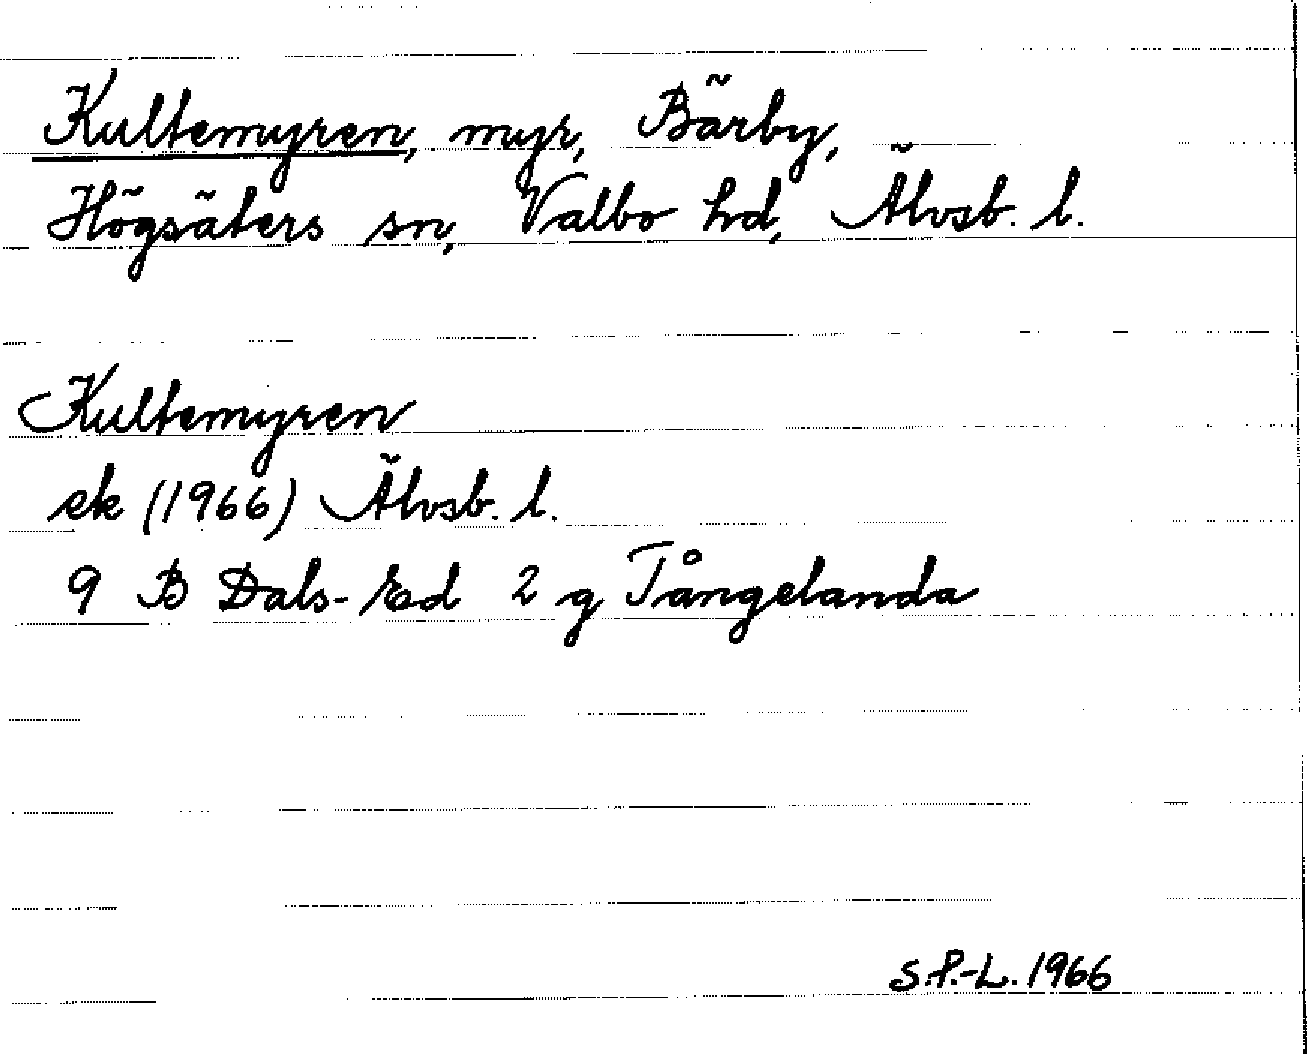 Kultemyren, myr, Bärby,
Högsäters sn, Valbo hd, Älvsb. l.
Kultemyren
ek (1966) Älvsb. l.
9 B Dals-Ed 2 g Tångelanda
S.P.-L. 1966